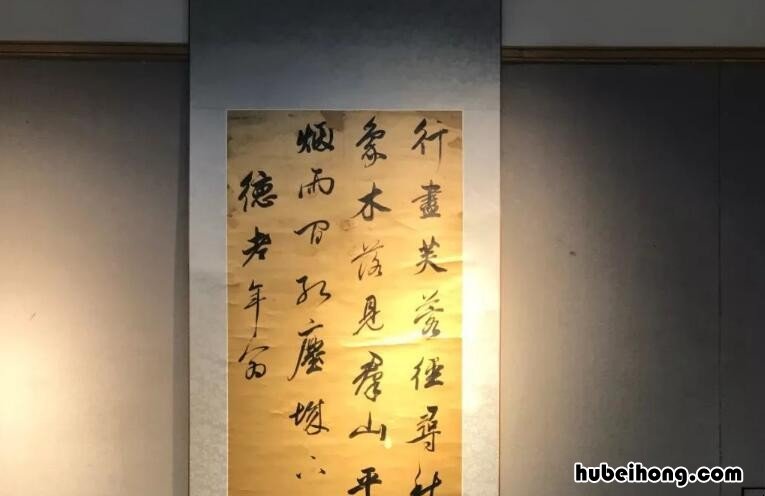 行盡芙蓉徑尋秋
象木落見羣山平
烟雨間紅塵
德老年翁
hubeihong.com